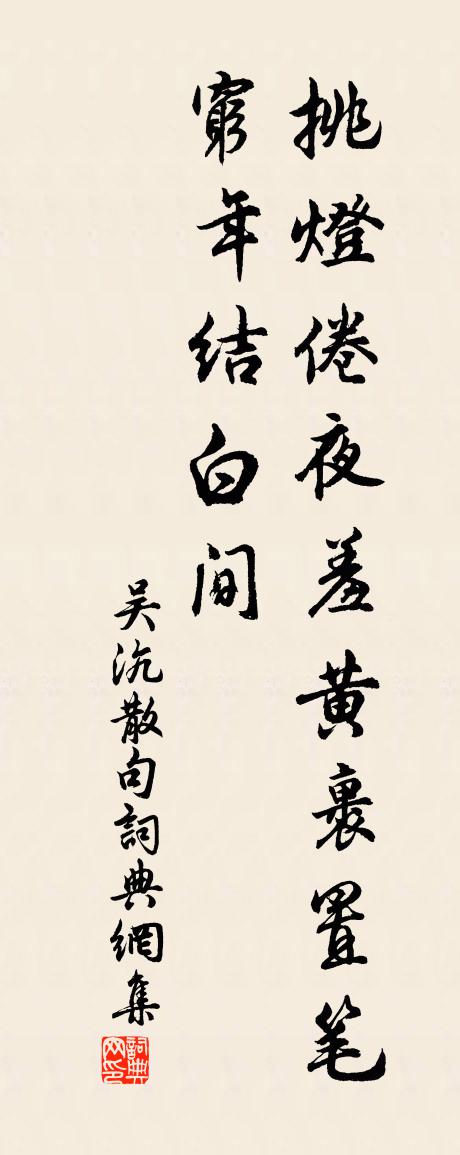 挑燈倦夜羞黄裹置笔
窮年结白间
吴沆散句詞典網集
詞典网印